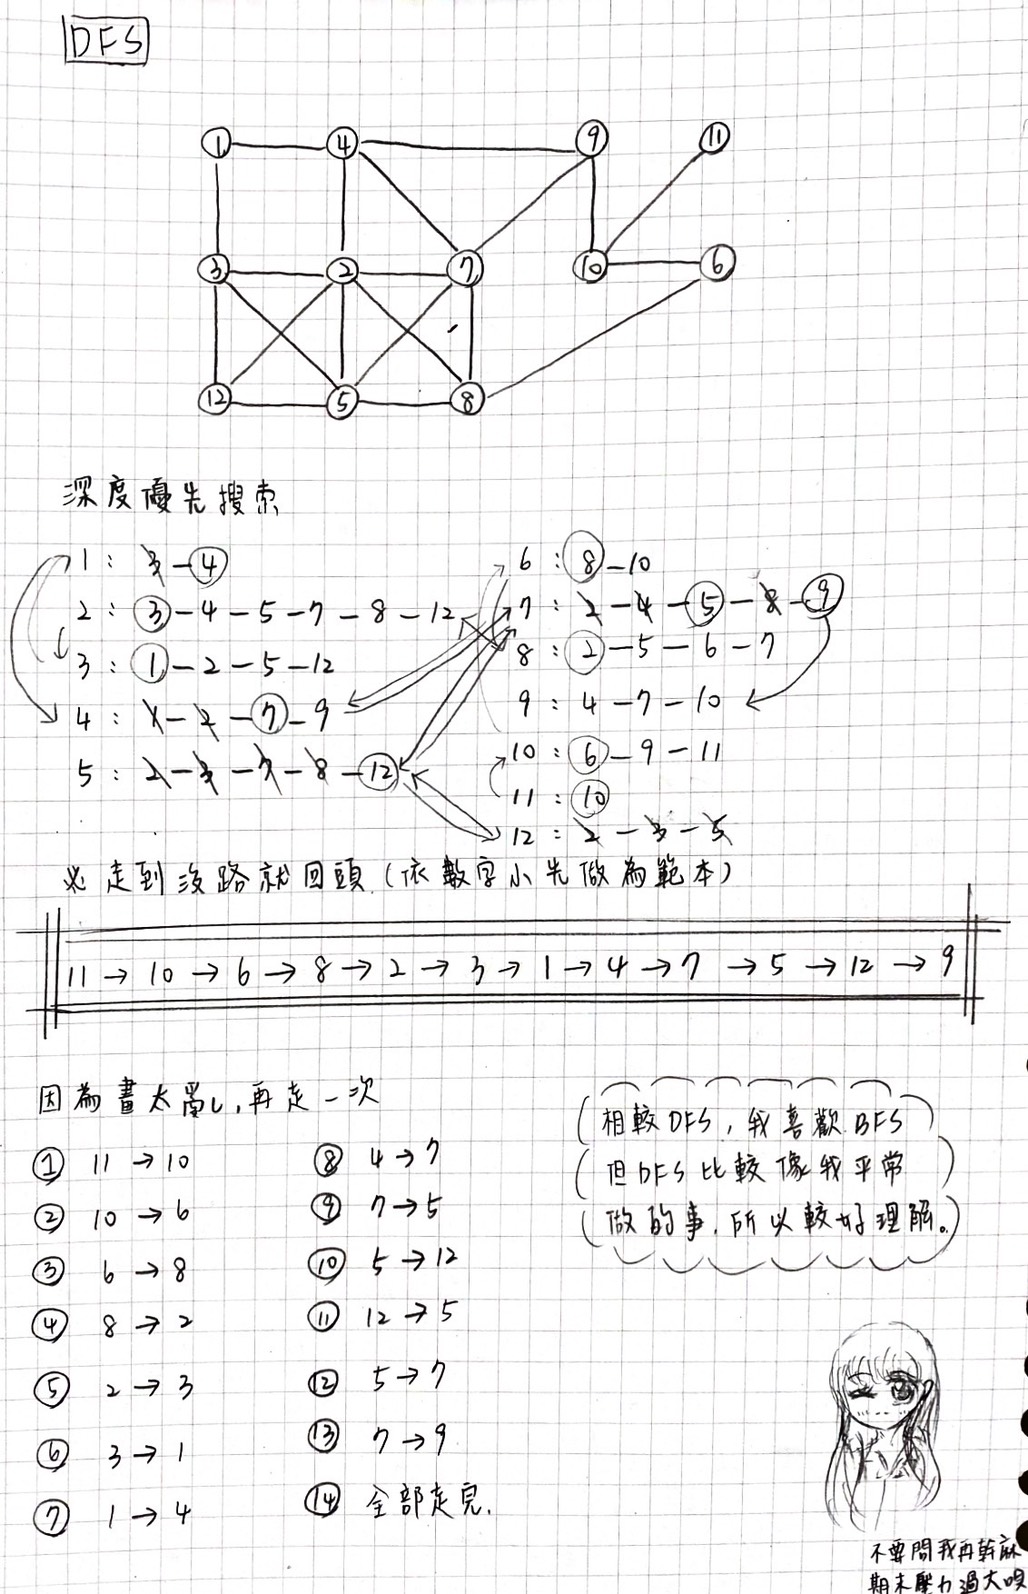 DFS
1 4 9 11
3 2 7 10 6
12 5 8
深度優先搜索
1 : 3 - 4
2 : 3 - 4 - 5 - 7 - 8 - 12
3 : 1 - 2 - 5 - 12
4 : 1 - 2 - 7 - 9
5 : 2 - 3 - 7 - 8 - 12
6 : 8 - 10
7 : 2 - 4 - 5 - 8 - 9
8 : 2 - 5 - 6 - 7
9 : 4 - 7 - 10
10 : 6 - 9 - 11
11 : 10
12 : 2 - 3 - 5
走到沒路就回頭 (依數字小先做為範本)
11 → 10 → 6 → 8 → 2 → 3 → 1 → 4 → 7 → 5 → 12 → 9
因為畫太亂,再走一次
① 11 → 10
② 10 → 6
③ 6 → 8
④ 8 → 2
⑤ 2 → 3
⑥ 3 → 1
⑦ 1 → 4
⑧ 4 → 7
⑨ 7 → 5
⑩ 5 → 12
⑪ 12 → 5
⑫ 5 → 7
⑬ 7 → 9
⑭ 全部走完.
相較DFS,我喜歡BFS
但DFS比較像我平常
做的事,所以較好理解。
不要問我再幹麻
期末壓力過大